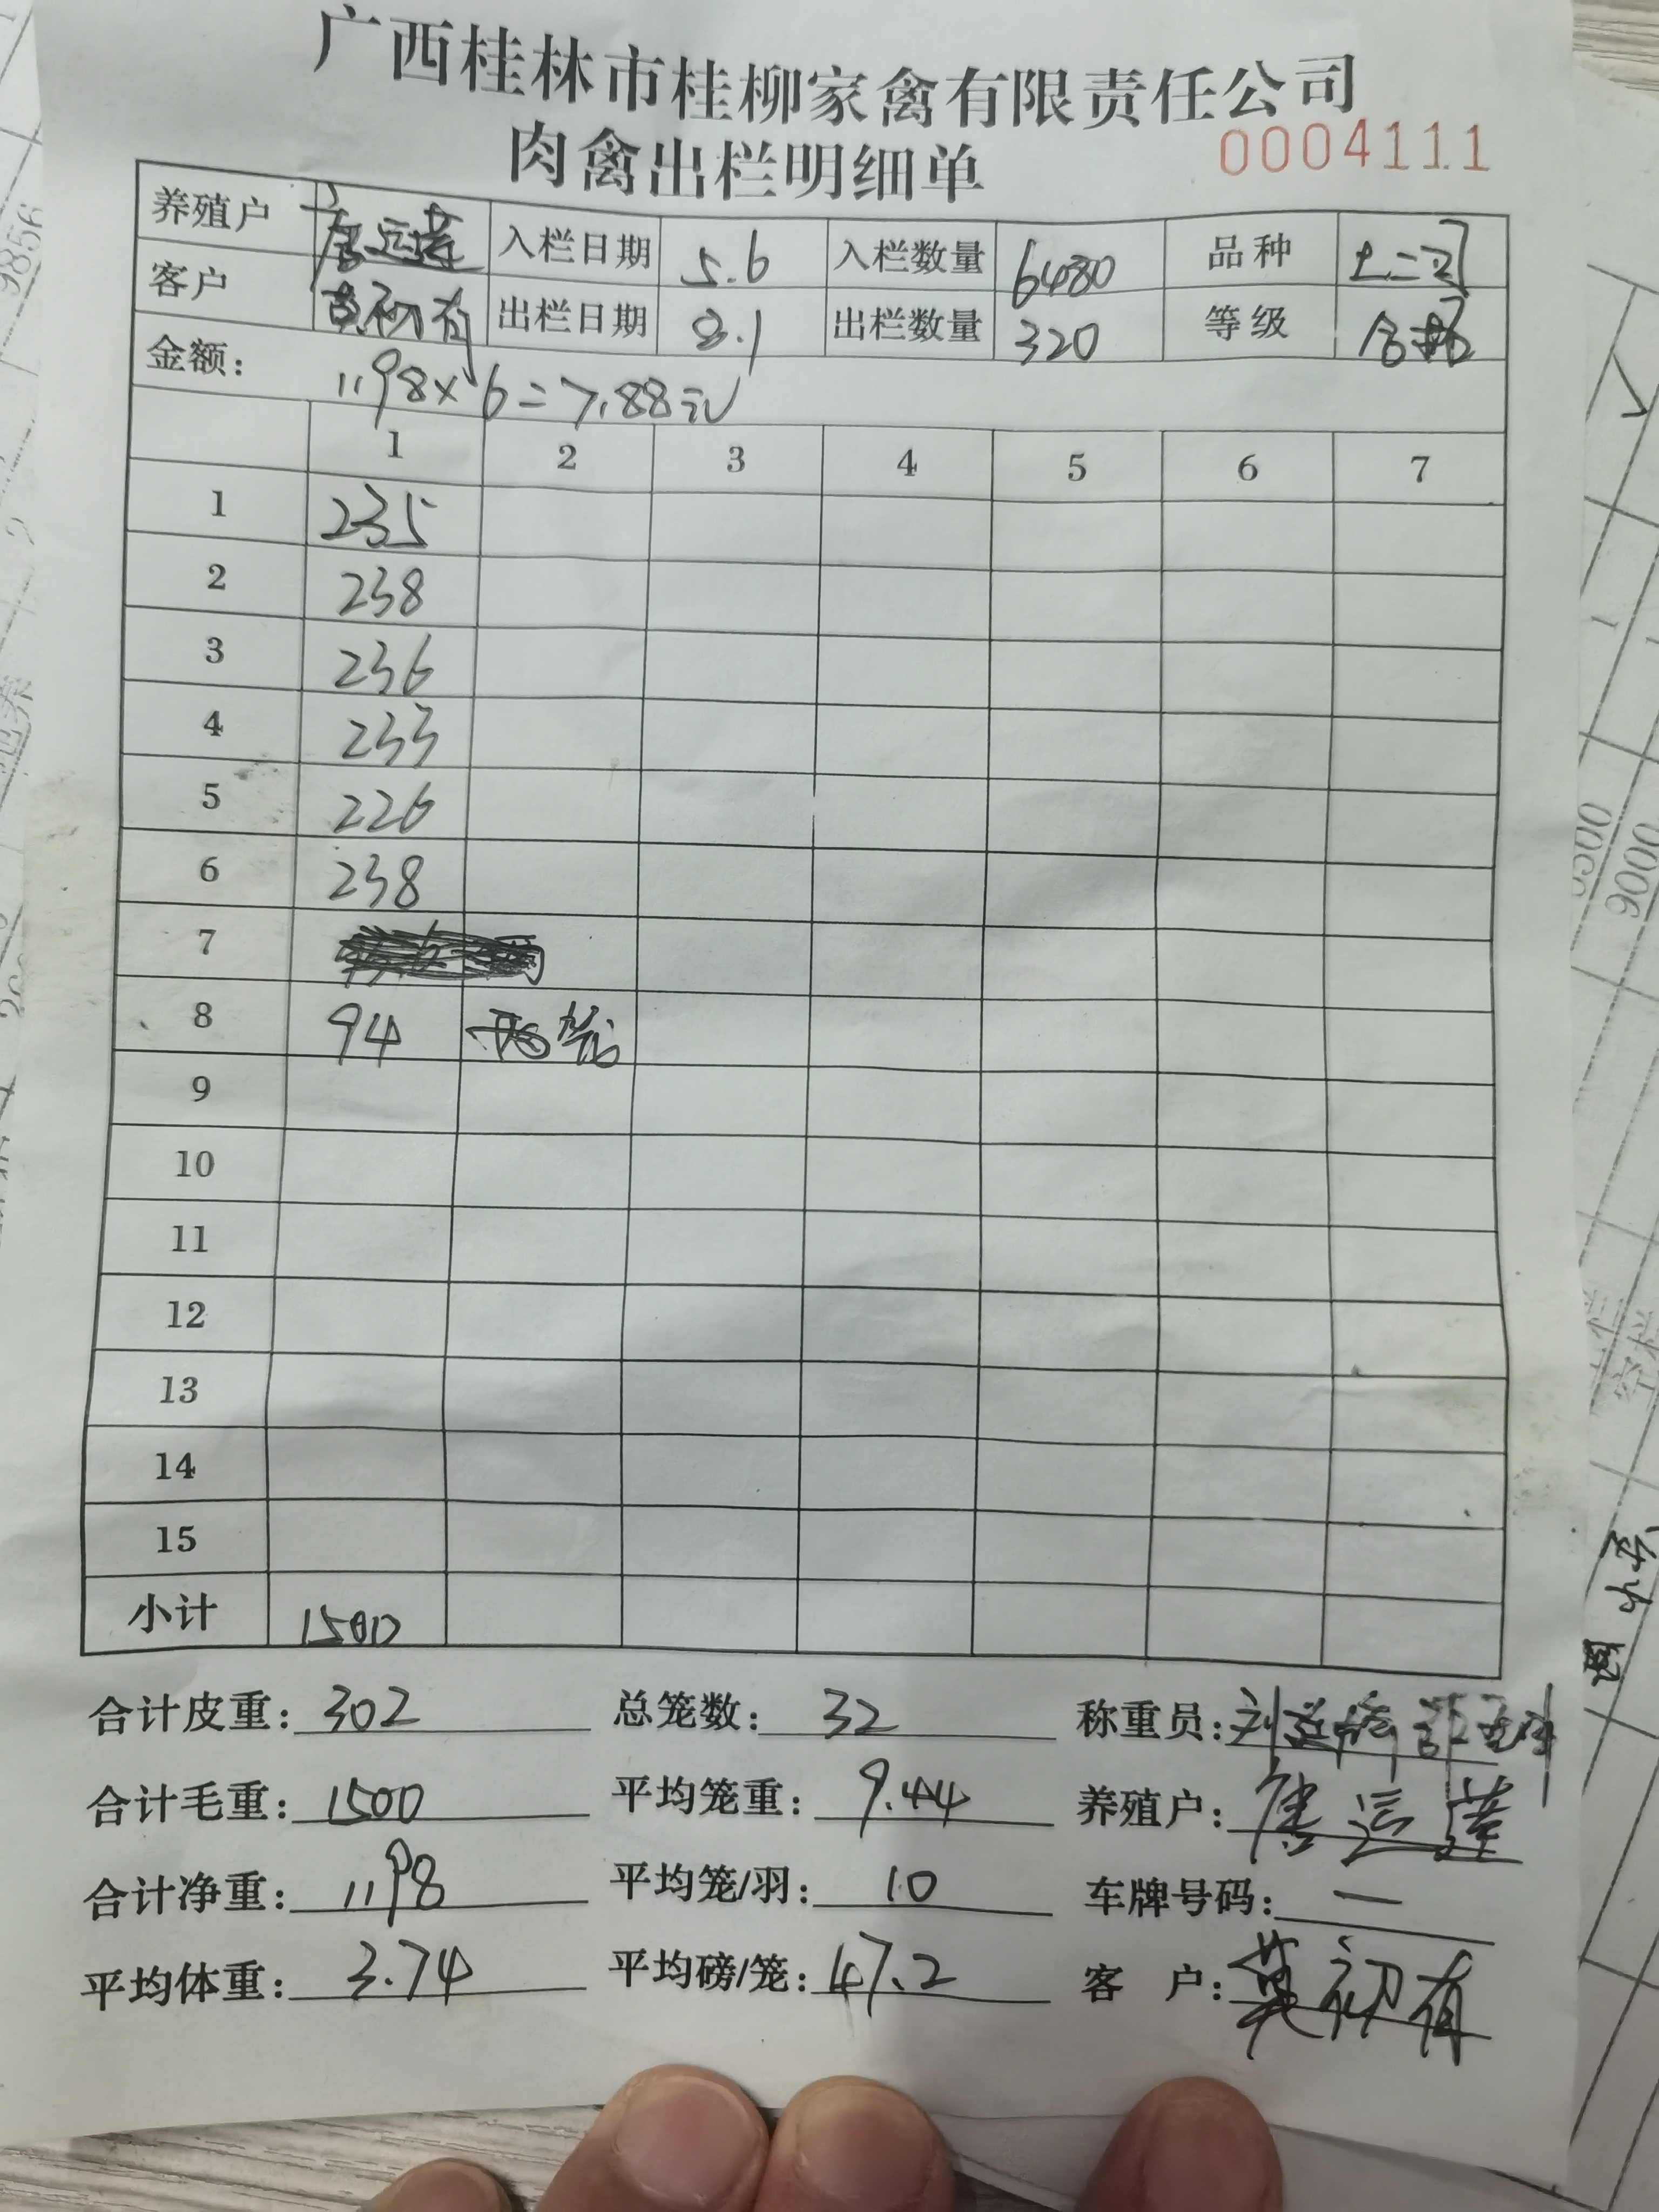 广西桂林市桂柳家禽有限责任公司
肉禽出栏明细单 0004111
养殖户 唐运莲 入栏日期 5.6 入栏数量 6480 品种 土二
客户 莫初有 出栏日期 8.1 出栏数量 320 等级 合格
金额: 1198×6=7188元
1 2 3 4 5 6 7
1 235
2 238
3 236
4 233
5 226
6 238
7
8 94 两笼
9
10
11
12
13
14
15
小计 1500
合计皮重: 302 总笼数: 32 称重员: 刘
合计毛重: 1500 平均笼重: 9.44 养殖户: 唐运莲
合计净重: 1198 平均笼/羽: 10 车牌号码: 一
平均体重: 3.74 平均磅/笼: 47.2 客 户: 莫初有
9856
5500
9000
空栏